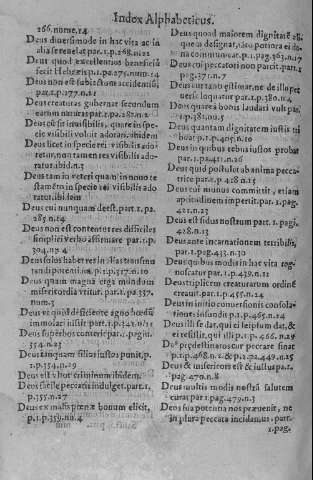 Index Alphabeticus.
266. nome. 14
Deus diuersimode in hac vita ac in
alia se reuelat par. 1. p. 268. n. 21
Deus quod excellentius beneficiū
fecit Hebræis p. 1. pa. 275. num. 14
Deus non est subiectum accidentis
par. 1. p. 277. n. 11
Deus creaturas gubernat secundum
earum naturas par. 1. p. 282. n. 1
Deus cū sit inuisibilis, quare in spe-
cie visibili voluit adorari. ibidem
Deus licet in specie rei visibilis ado
retur, non tamen res visibilis ado-
ratur. ibid. n. 3
Deus tam in veteri quam in nouo te
stamēto in specie rei visibilis ado
ratur. ibidem
Deus cui nunquam deest. part. 1. pa.
287. n. 14
Deus non est contentus res difficiles
simplici verbo affirmare par. 1. p.
304. n. 4
Deus solus habet vim alias transmu
tandi potentiam. p. 1. p. 317. n. 10
Deus quam magna erga mundum
misericordia vtitur. par. 1. pa. 337.
num. 3
Deus et quod deficiente agno hœdū
immolari iussit part. 1. p. 341. n. 11
Deus superbos conterit par. 1. pagin.
354. n. 23
Deus tanquam filias iustos punit, p.
1. p. 354. n. 29
Deus est vltor criminum ibidem.
Deus facile peccatis indulget. part. 1.
p. 355. n. 27
Deus ex malis pœnæ bonum elicit,
p. 1. p. 359. no. 4
Deus quod maiorem dignitatē ali-
cui
Deus cui peccatori non parcit. part. 1
pag. 371. n. 7
Deus curtanti estimat, ne de illo pet
uersè loquatur par. 1. p. 380. n. 4
Deus quare à bonis laudari vult par.
1. p. 381. no. 5
Deus quantam dignitatem iustis tri
buat p. 1. pa. 405. n. 10
Deus in quibus rebus iustos probat
par. 1. pa. 421. n. 26
Deus quid postulet ab anima pecca-
trice par. 1. p. 428. n. 15
Deus cui munus committit, etiam
aptitudinem impertit. par. 1. pag.
421. n. 23
Deus est sidus nostrum part. 1. pagi.
428. n. 13
Deus ante incarnationem terribilis,
par. 1. pag. 435. n. 30
Deus quibus modis in hac vita cog-
noscatur par. 1. p. 439. n. 11
Deus triplicem creaturarum ordinē
creauit. par. 1. p. 455. n. 24
Deus in initio conuersionis consola-
tiones infundit p. 1. p. 465. n. 14
Deus illi se dat, qui ei leipsum dat, &
ei resistit, qui illi p. 1. p. 466. n. 29
Deus prædestinatos cur peccare sinat
p. 1. p. 468. n. 2. & p. 1. pa. 449. n. 25
Deus & misericors est & iustus pa. 1.
pag. 470. n. 8
Deus multis modis nostrā salutem
curat par 1. pag. 479. n. 3
Deus sua potentia nos præuenit, ne
in plura peccata incidamus. part.
1. pag.